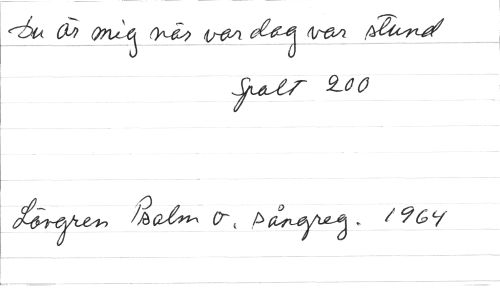 Du är mig när var dag var stund
Spalt 200
Lövgren Psalm o. sångreg. 1964